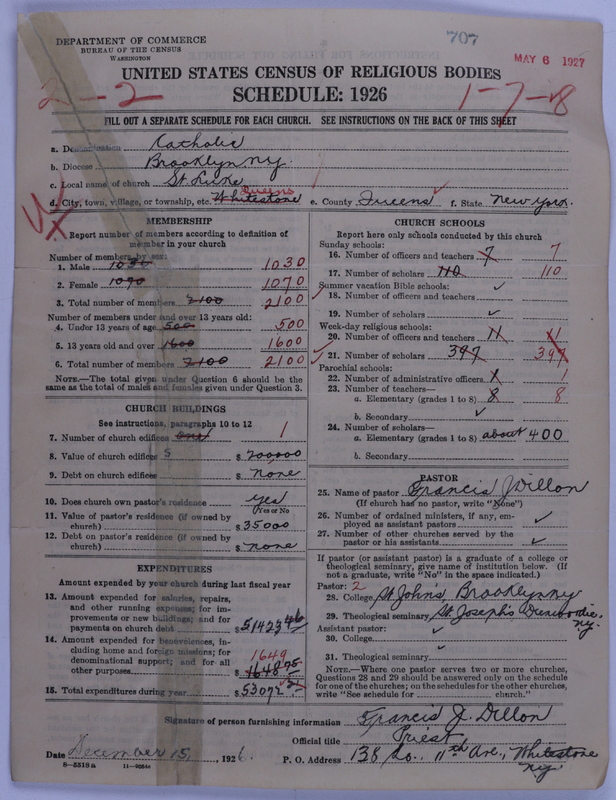 707
MAY 6 1927
DEPARTMENT OF COMMERCE
BUREAU OF THE CENSUS
WASHINGTON
UNITED STATES CENSUS OF RELIGIOUS BODIES
SCHEDULE: 1926
2-2
1-7-8
FILL OUT A SEPARATE SCHEDULE FOR EACH CHURCH. SEE INSTRUCTIONS ON THE BACK OF THIS SHEET
a. Denomination Catholic
b. Diocese Brooklyn N.Y.
c. Local name of church St Luke
Queens
d. City, town, village, or township, etc. Whitestone e. County Queens f. State New York.
MEMBERSHIP
Report number of members according to definition of member in your church
Number of members by sex:
1. Male 1030 1030
2. Female 1070 1070
3. Total number of members 2100 2100
Number of members under and over 13 years old:
4. Under 13 years of age 500 500
5. 13 years old and over 1600 1600
6. Total number of members 2100 2100
NOTE.—The total given under Question 6 should be the same as the total of males and females given under Question 3.
CHURCH BUILDINGS
See instructions, paragraphs 10 to 12
7. Number of church edifices one 1
8. Value of church edifices $ 200000
9. Debt on church edifices $ None
10. Does church own pastor's residence Yes
(Yes or No)
11. Value of pastor's residence (if owned by church) $ 35000
12. Debt on pastor's residence (if owned by church) $ None
EXPENDITURES
Amount expended by your church during last fiscal year
13. Amount expended for salaries, repairs, and other running expenses; for improvements or new buildings; and for payments on church debt $ 51423 46
14. Amount expended for benevolences, including home and foreign missions; for denominational support; and for all other purposes 1649 $ 1648 75
15. Total expenditures during year $ 53072
CHURCH SCHOOLS
Report here only schools conducted by this church
Sunday schools:
16. Number of officers and teachers 7 7
17. Number of scholars 110 110
Summer vacation Bible schools:
18. Number of officers and teachers
19. Number of scholars
Week-day religious schools:
20. Number of officers and teachers 11 11
21. Number of scholars 397 397
Parochial schools:
22. Number of administrative officers 1 1
23. Number of teachers—
a. Elementary (grades 1 to 8) 8 8
b. Secondary
24. Number of scholars—
a. Elementary (grades 1 to 8) about 400
b. Secondary
PASTOR
25. Name of pastor Francis J Dillon
(If church has no pastor, write "None")
26. Number of ordained ministers, if any, employed as assistant pastors
27. Number of other churches served by the pastor or his assistants
If pastor (or assistant pastor) is a graduate of a college or theological seminary, give name of institution below. (If not a graduate, write "No" in the space indicated.)
Pastor: 2
28. College St Johns, Brooklyn N.Y.
29. Theological seminary St Joseph's Dunwoodie, N.Y.
Assistant pastor:
30. College
31. Theological seminary
NOTE.—Where one pastor serves two or more churches, Questions 28 and 29 should be answered only on the schedule for one of the churches; on the schedules for the other churches, write "See schedule for ______ church."
Signature of person furnishing information Francis J. Dillon
Official title Priest
Date December 15, 1926. P. O. Address 138 So. 11th Ave., Whitestone N.Y.
8-5518a